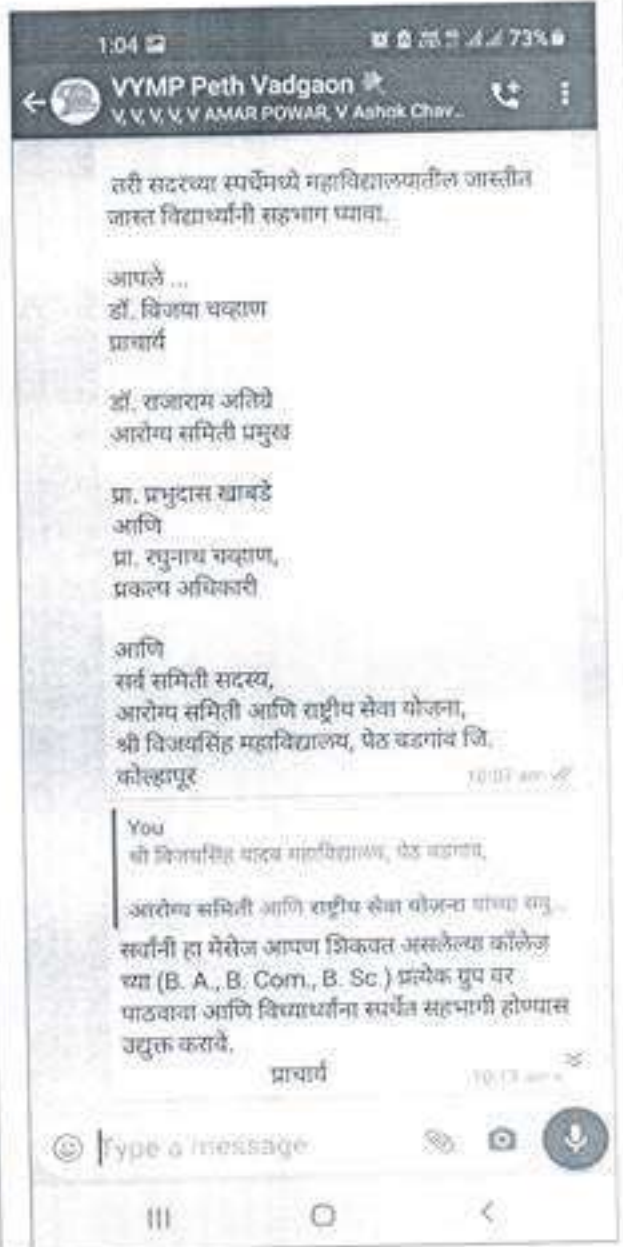 1:04
73%
VYMP Peth Vadgaon
V, V, V, V, V AMAR POWAR, V Ashok Chav...
तरी सदरच्या स्पर्धेमध्ये महाविद्यालयातील जास्तीत
जास्त विद्यार्थ्यांनी सहभाग घ्यावा.
आपले ...
डॉ. विजया चव्हाण
प्राचार्य
डॉ. राजाराम अतिग्रे
आरोग्य समिती प्रमुख
प्रा. प्रभुदास खाबडे
आणि
प्रा. रघुनाथ चव्हाण,
प्रकल्प अधिकारी
आणि
सर्व समिती सदस्य,
आरोग्य समिती आणि राष्ट्रीय सेवा योजना,
श्री विजयसिंह महाविद्यालय, पेठ वडगांव जि.
कोल्हापूर
10:07 am
You
श्री विजयसिंह यादव महाविद्यालय, पेठ वडगांव,
आरोग्य समिती आणि राष्ट्रीय सेवा योजना यांच्या संयु...
सर्वांनी हा मेसेज आपण शिकवत असलेल्या कॉलेज
च्या (B. A., B. Com., B. Sc ) प्रत्येक ग्रुप वर
पाठवावा आणि विध्यार्थ्यांना स्पर्धेत सहभागी होण्यास
उद्युक्त करावे.
प्राचार्य
10:13 am
Type a message